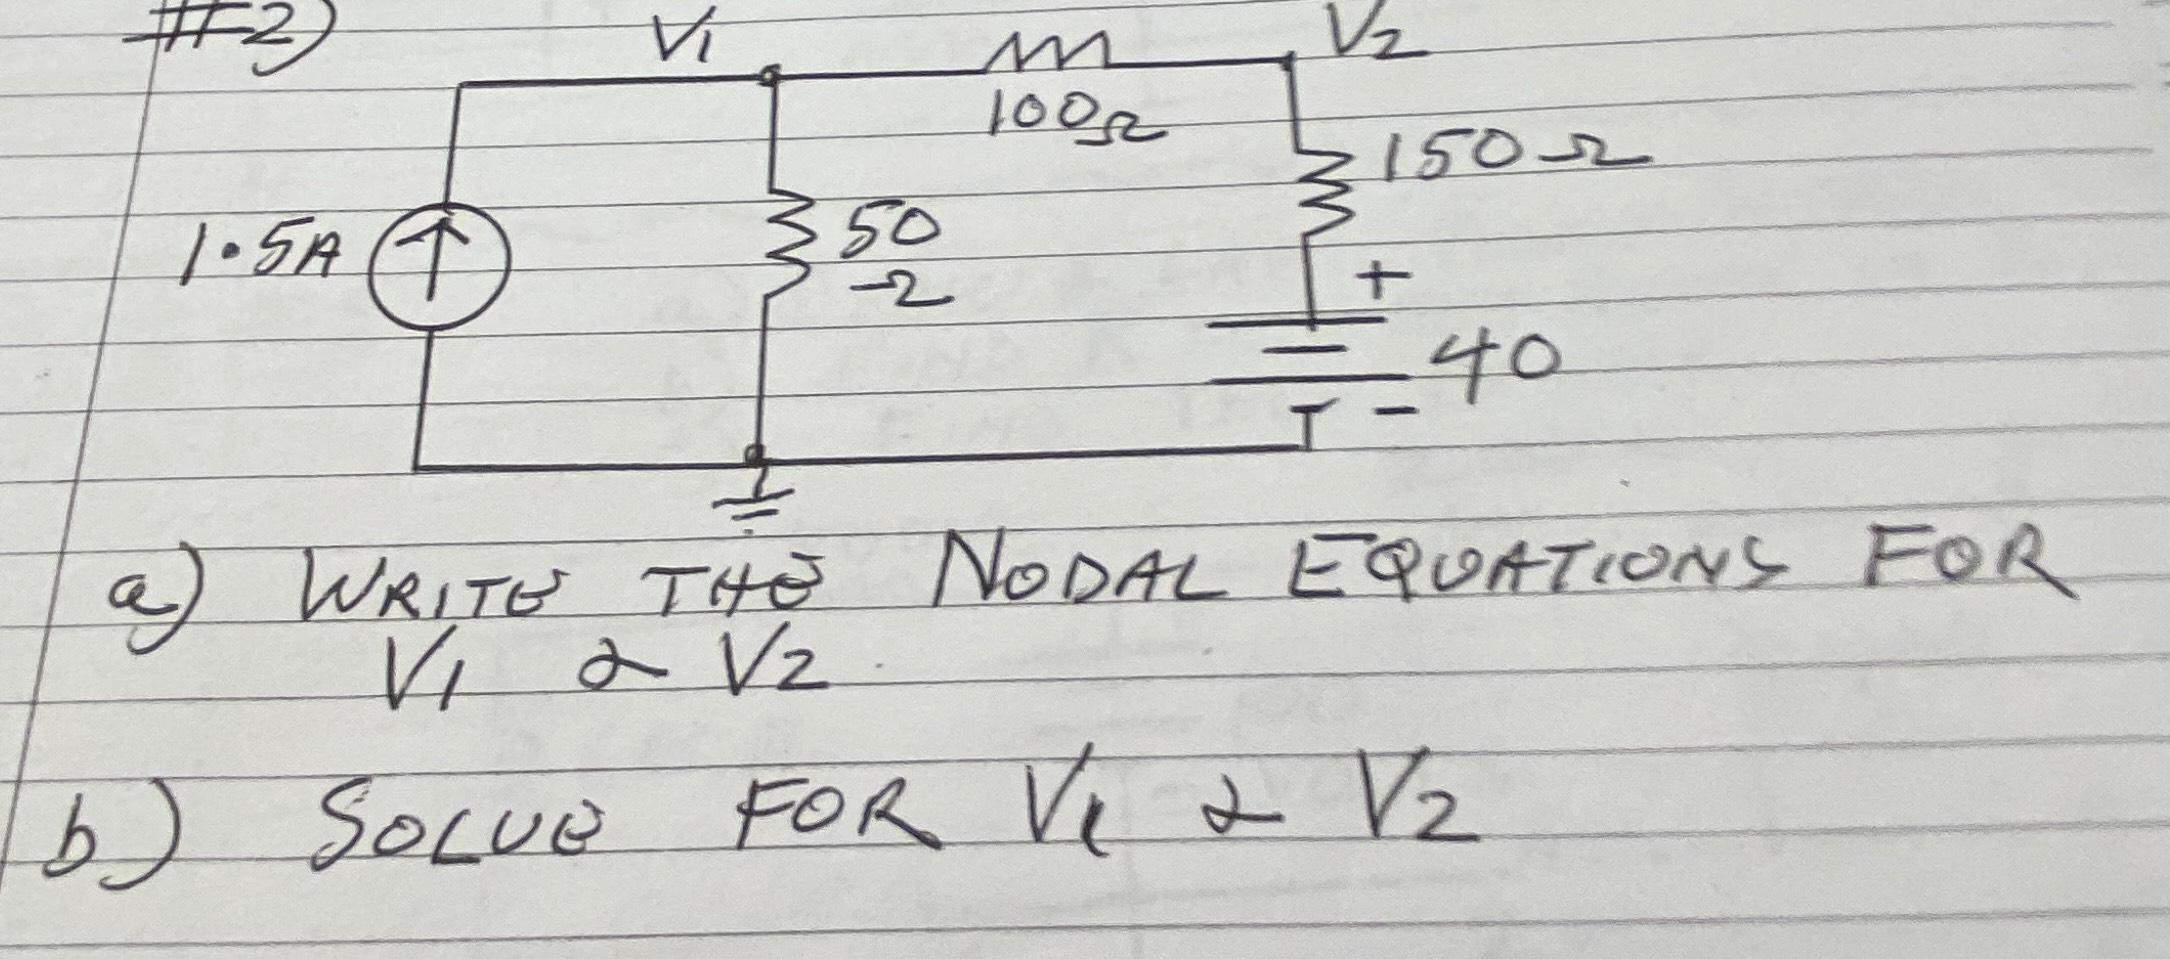 #2)
V1
V2
100Ω
150Ω
1.5A
50
Ω
+
40
-
a) WRITE THE NODAL EQUATIONS FOR
V1 & V2
b) SOLVE FOR V1 & V2